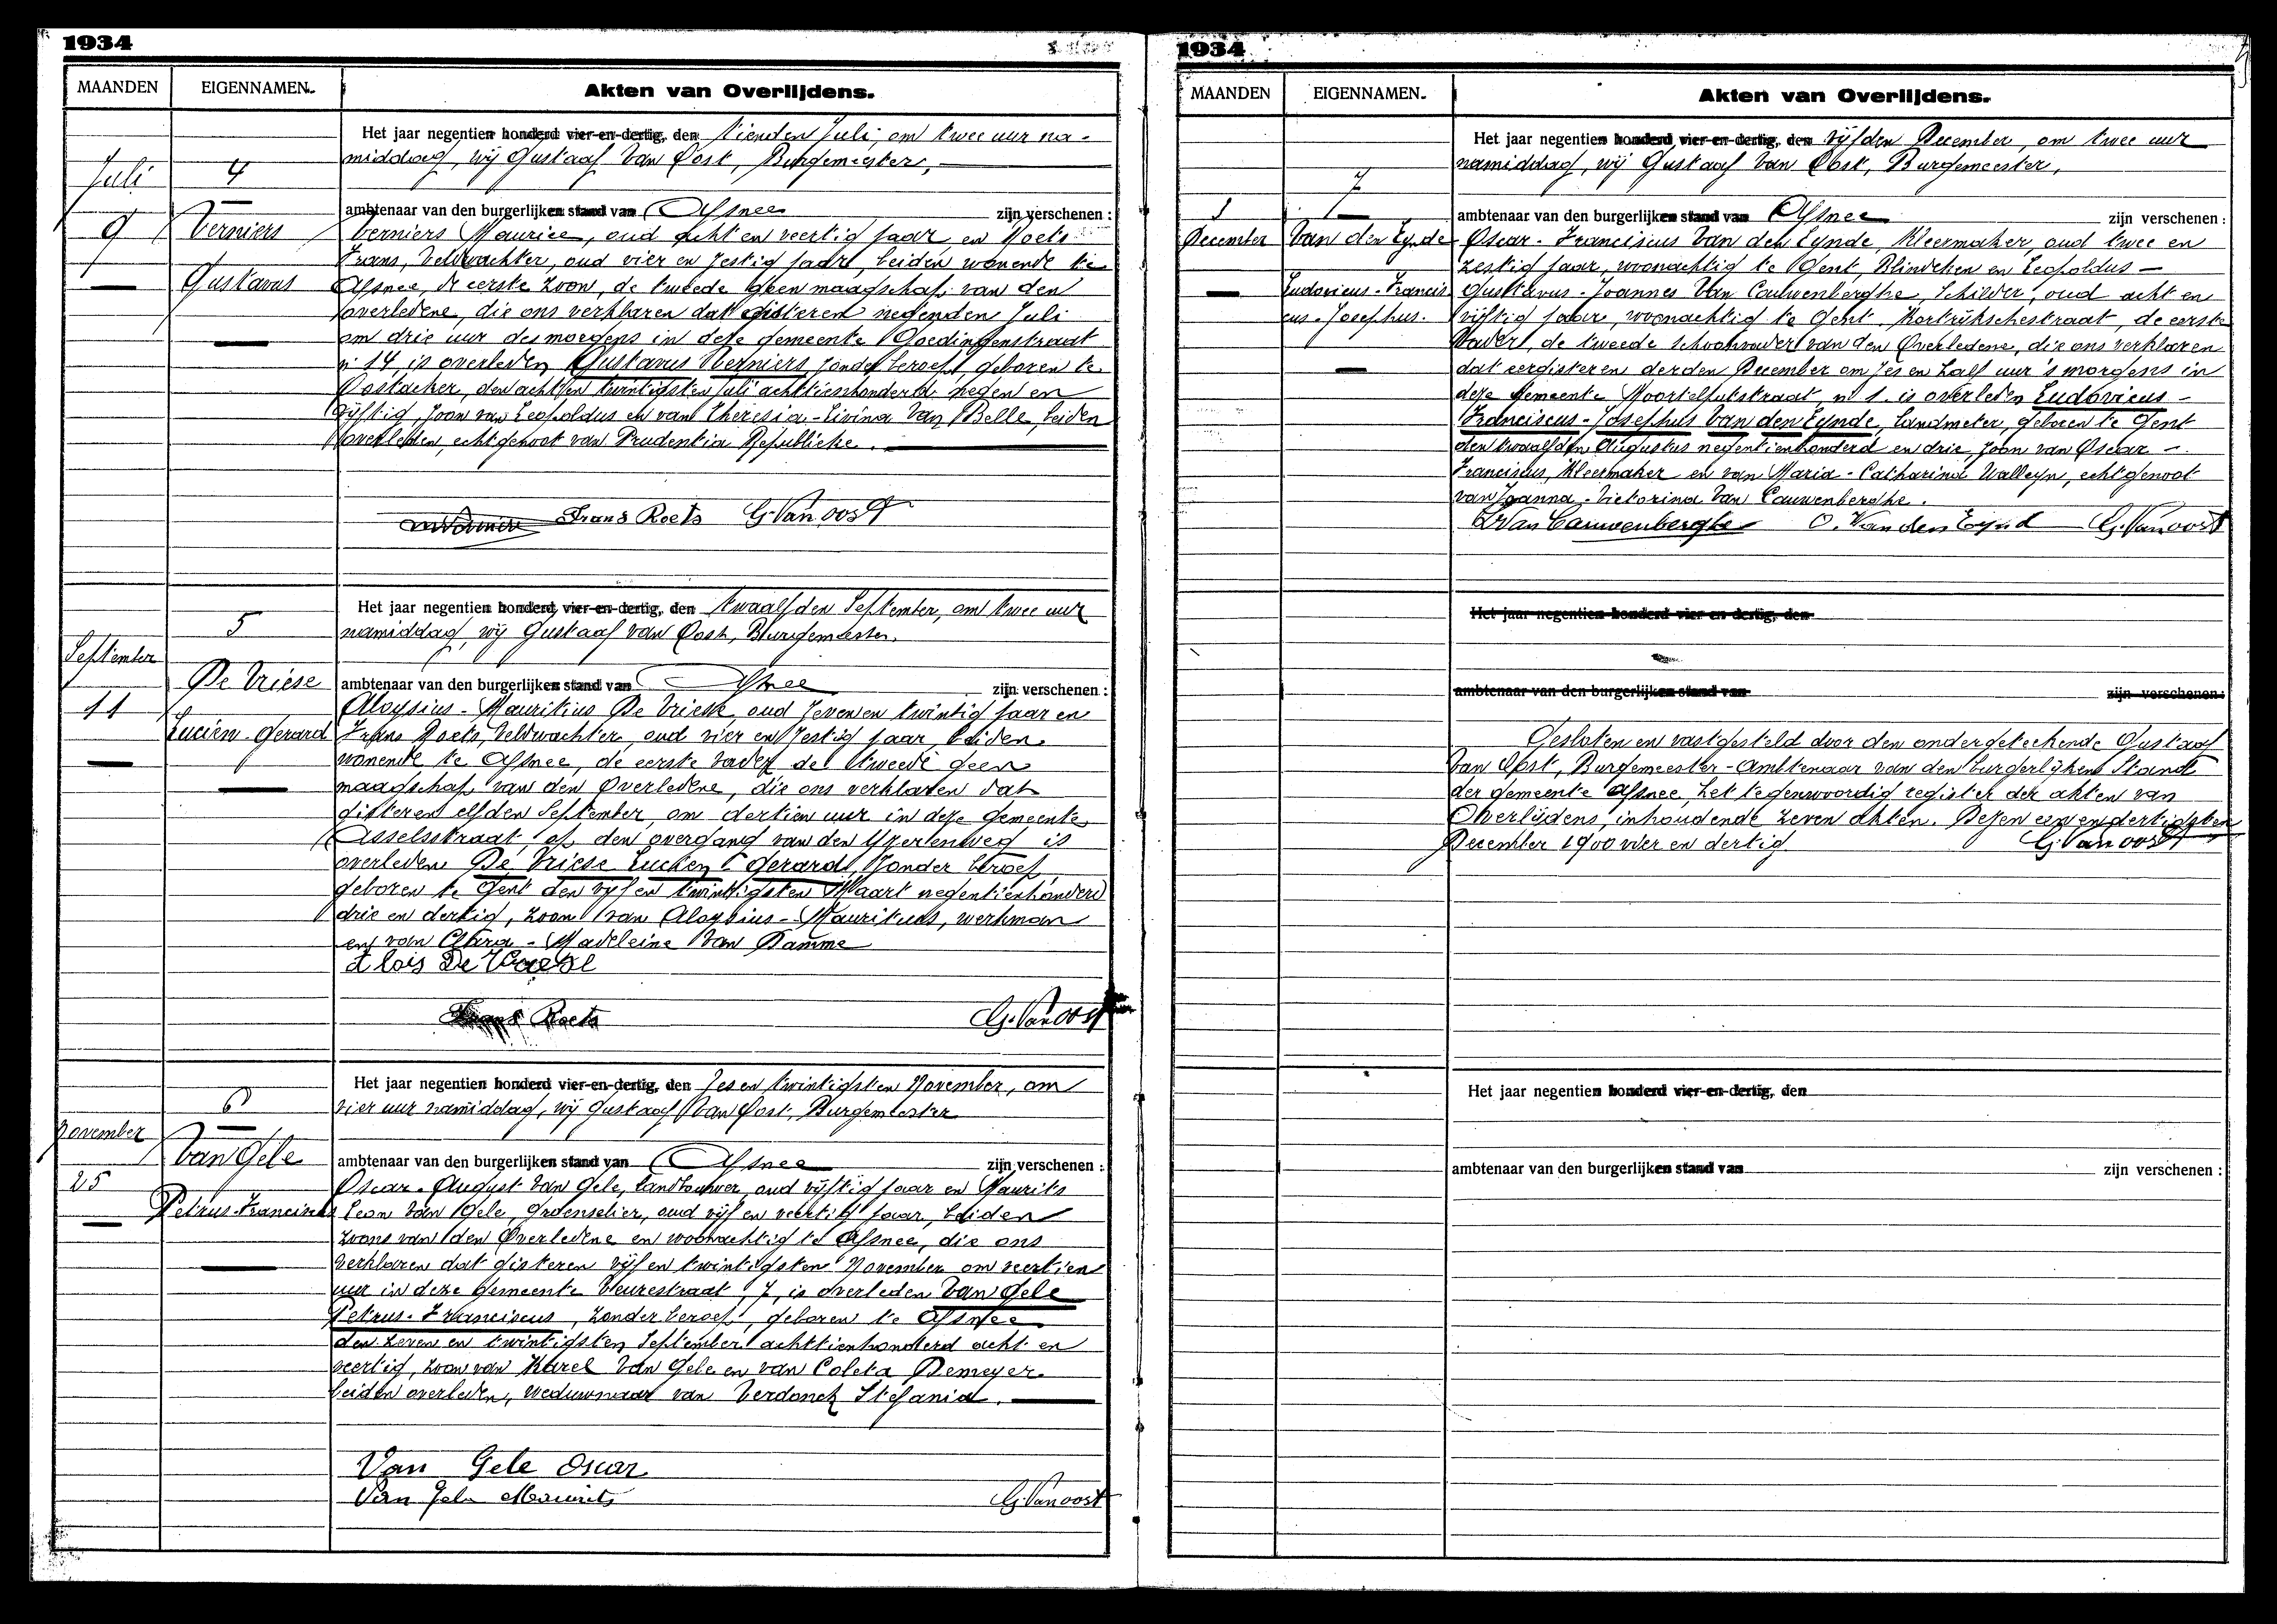 1934
MAANDEN EIGENNAMEN. Akten van Overlijdens.
Het jaar negentien honderd vier-en-dertig, den tienden Juli, om twee uur na-
middag, wij Gustaaf Van Oost, Burgemeester,
Juli 4
ambtenaar van den burgerlijken stand van Afsnee zijn verschenen :
9 Verniers Verniers Maurice, oud acht en veertig jaar en Roets
Frans, Veldwachter, oud vier en zestig jaar, beiden wonende te
Gustavus Afsnee, de eerste zoon, de tweede geen maagschap van den
overledene, die ons verklaren dat gisteren negenden Juli
om drie uur des morgens in deze gemeente Goedingenstraat
n° 14, is overleden Gustavus Verniers zonder beroep, geboren te
Oostacker, den acht en twintigsten Juli achttienhonderd negen en
vijftig, zoon van Leopoldus en van Theresia-Livina Van Belle, beiden
overleden, echtgenoot van Prudentia Republieke.
Frans Roets G. Van oost
Het jaar negentien honderd vier-en-dertig, den twaalfden September, om twee uur
5 namiddag, wij Gustaaf Van Oost, Burgemeester,
September
De Vriese ambtenaar van den burgerlijken stand van Afsnee zijn verschenen :
11 Aloysius-Mauritius De Vriese, oud zeven en twintig jaar en
Lucien-Gerard Frans Roets, Veldwachter, oud vier en zestig jaar beiden
wonende te Afsnee, de eerste vader de tweede geen
maagschap van den Overledene, die ons verklaren dat
gisteren elfden September, om dertien uur in deze gemeente
Asselsstraat, op den overgang van den Yzerenweg is
overleden De Vriese Lucien-Gerard, zonder beroep,
geboren te Gent den vijf en twintigsten Maart negentienhonderd
drie en dertig, zoon van Aloysius-Mauritius, werkman
en van Clara-Madeleine Van Damme
Alois De Vriese
Frans Roets G. Van oost
Het jaar negentien honderd vier-en-dertig, den zes en twintigsten November, om
6 vier uur namiddag, wij Gustaaf Van Oost, Burgemeester
November
Van Gele ambtenaar van den burgerlijken stand van Afsnee zijn verschenen :
25 Oscar-August Van Gele, landbouwer, oud vijftig jaar en Maurits
Petrus-Franciscus Leon Van Gele, groenselier, oud vijf en veertig jaar, beiden
zoons van den Overledene en woonachtig te Afsnee, die ons
verklaren dat gisteren vijf en twintigsten November om veertien
uur in deze gemeente Veurestraat, 7, is overleden Van Gele
Petrus-Franciscus, zonder beroep, geboren te Afsnee
den zeven en twintigsten September achttienhonderd acht en
veertig, zoon van Karel Van Gele en van Coleta Demeyer
beiden overleden, weduwnaar van Verdonck Stefania.
Van Gele Oscar
Van Gele Maurits G. Van oost
1934
MAANDEN EIGENNAMEN. Akten van Overlijdens.
Het jaar negentien honderd vier-en-dertig, den vijfden December, om twee uur
namiddag, wij Gustaaf Van Oost, Burgemeester,
7
ambtenaar van den burgerlijken stand van Afsnee zijn verschenen :
December Van den Eynde Oscar-Franciscus Van den Eynde, kleermaker, oud twee en
zestig jaar, woonachtig te Gent, Blindeken en Leopoldus-
Ludovicus-Francis Gusttavus-Joannes Van Cauwenberghe, Schilder, oud acht en
cus-Josephus. vijftig jaar, woonachtig te Gent, Kortrijkschestraat, de eerste
Vader, de tweede schoonvader van den Overledene, die ons verklaren
dat eergisteren derden December om zes en half uur 's morgens in
deze gemeente Moortelputstraat, n° 1. is overleden Ludovicus-
Franciscus-Josephus Van den Eynde, landmeter, geboren te Gent
den twaalfden Augustus negentienhonderd en drie, zoon van Oscar-
Franciscus, kleermaker en van Maria-Catharina Walleyn, echtgenoot
van Joanna-Victorina Van Cauwenberghe.
Van Cauwenberghe O. Van den Eynd G. Van oost
Het jaar negentien honderd vier en dertig, den
ambtenaar van den burgerlijken stand van zijn verschenen:
Gesloten en vastgesteld door den ondergeteekende Gustaaf
Van Oost, Burgemeester-Ambtenaar van den burgerlijken Stand
der gemeente Afsnee, het tegenwoordig register der akten van
Overlijdens, inhoudende zeven akten. Dezen een en dertigsten
December 1900 vier en dertig G. Van oost
Het jaar negentien honderd vier-en-dertig, den
ambtenaar van den burgerlijken stand van zijn verschenen :